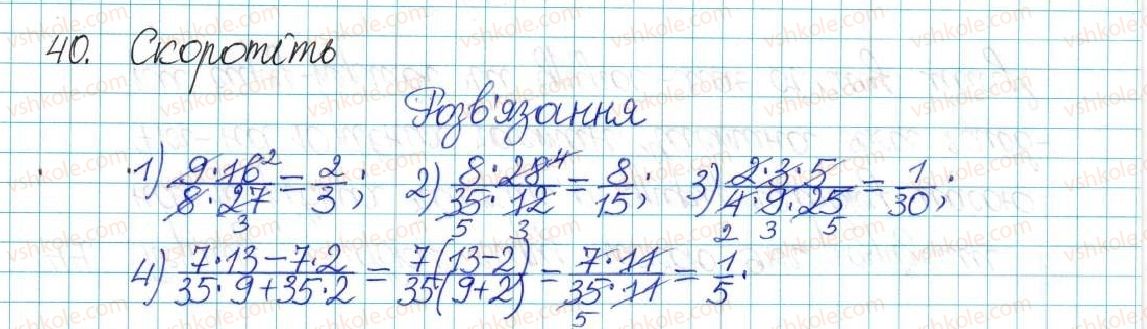 40. Скоротіть
Розв'язання
1) 9·16² / 8·27₃ = 2/3; 2) 8·28⁴ / 35₅·12₃ = 8/15; 3) 2·3·5 / 4₂·9₃·25₅ = 1/30;
4) 7·13-7·2 / 35·9+35·2 = 7(13-2) / 35(9+2) = 7·11 / 35₅·11 = 1/5.